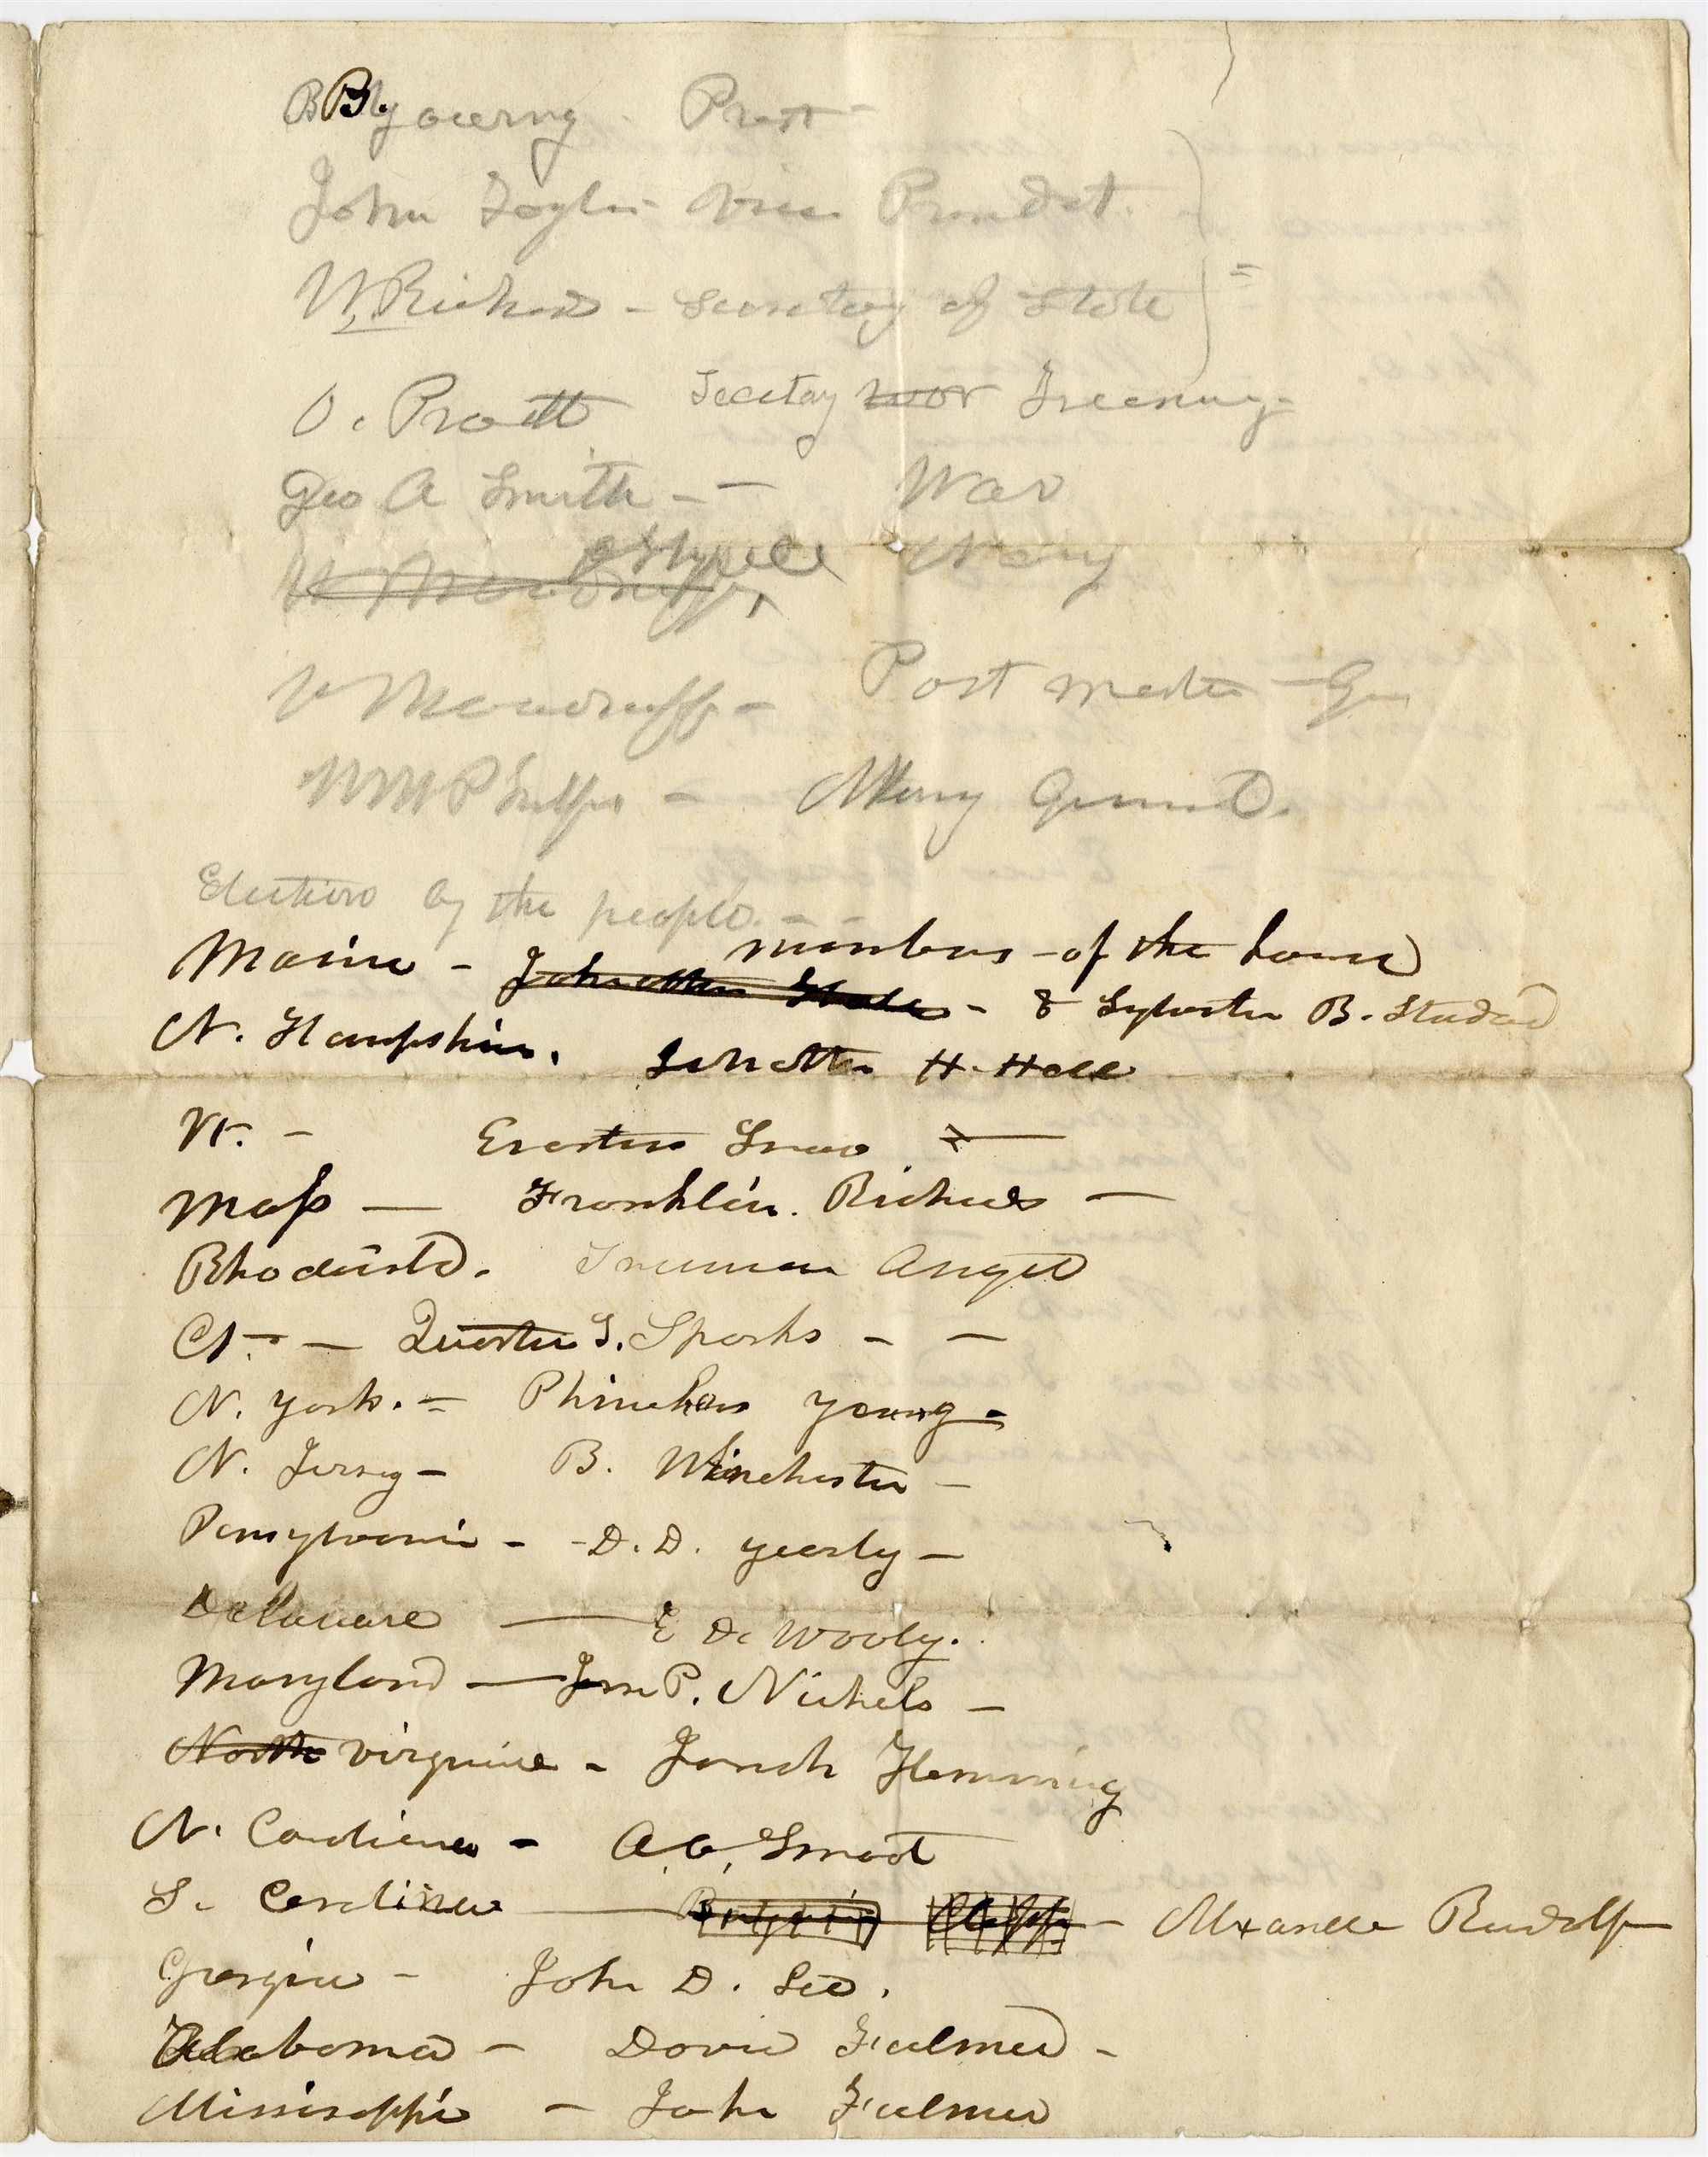 B B. young - Prest -
John Taylor vice Presidet. -
W, Richards - Secretary of State =
O. Pratt Secetay war Treasuryr
Geo A Smith - - War
O Hyde Navy
W Woodruff -
W Woodruff - Post master - Gen
WW Phelps - Attorny General.
Election by the people. - -
members - of the house
Maine - Jonathan Hale - & Sylvester B. Stodard
N. Hampshire. Johathan H. Hale
Vt. - Erastus Snow -
Mass — Franklin. Richards -
Rhodeisld. Truman Angel
Ct - — Quartus S. Sparks - -
N. york. = Phinehas young -
N. Jersey - B. Winchester -
Pensylvania - - D. D. yearsly -
Delaware — E D. Wooly.
Maryland — Jose P. Nichels -
North virginia - Josiah Flemming
N. Carolina - A. O. Smoot
S. Carolina — - Alxander Rudolf
Georgia - John D. Lee.
Alabama - David Fulmer -
Mississippi - John Fulmer